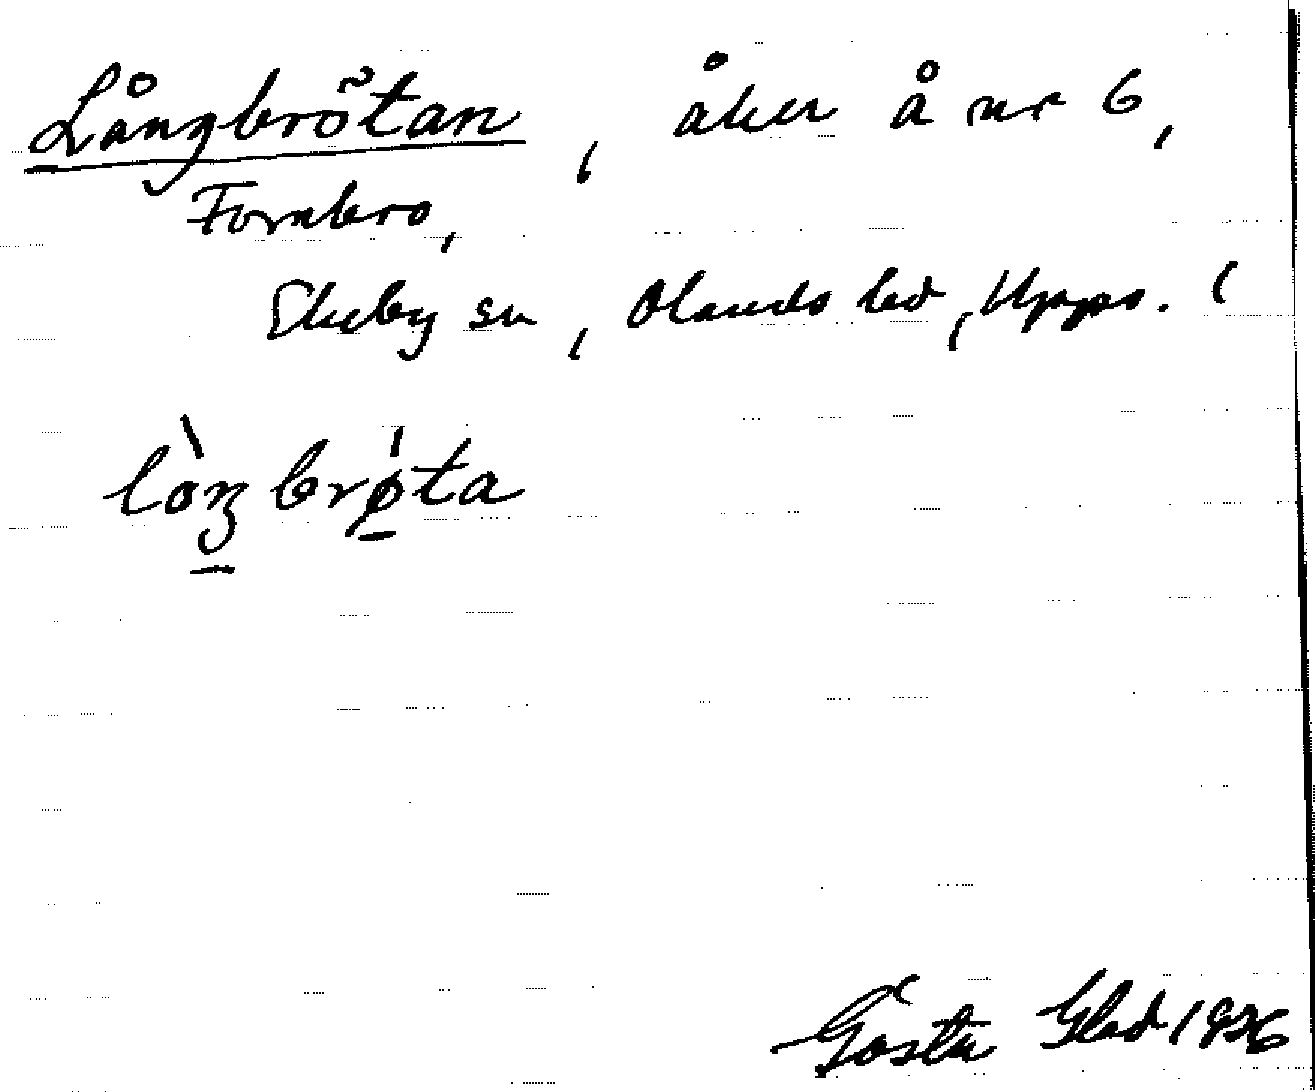 Långbrötan, åker å nr 6,
Fornbro,
Skuby sn, Olands hd, Upps. l
lòŋbrø̀ta
Gösta Glad 1936